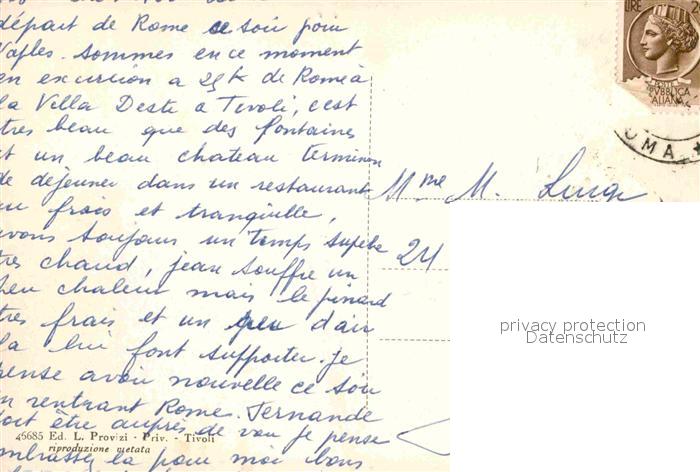 départ de Rome ce soir pour
Naples. Sommes en ce moment
en excursion a 25k de Rome à
la Villa Deste a Tivoli, c'est
tres beau que des fontaines
et un beau chateau terminon
de dejeuner dans un restaurant
au frais et tranquille,
avons toujours un temps superbe
tres chaud, jean souffre un
peu chaleur mais le pinard
tres frais et un peu d'air
la lui font supporter. Je
pense avoir nouvelle ce soir
en rentrant Rome. Fernande
doit être auprès de vou je pense
embrassez la pour moi bons
46685 Ed. L. Provizi - Priv. - Tivoli
riproduzione vietata
LIRE 2
POSTE
REPUBBLICA
ITALIANA
ROMA
Mme M.
24
privacy protection
Datenschutz